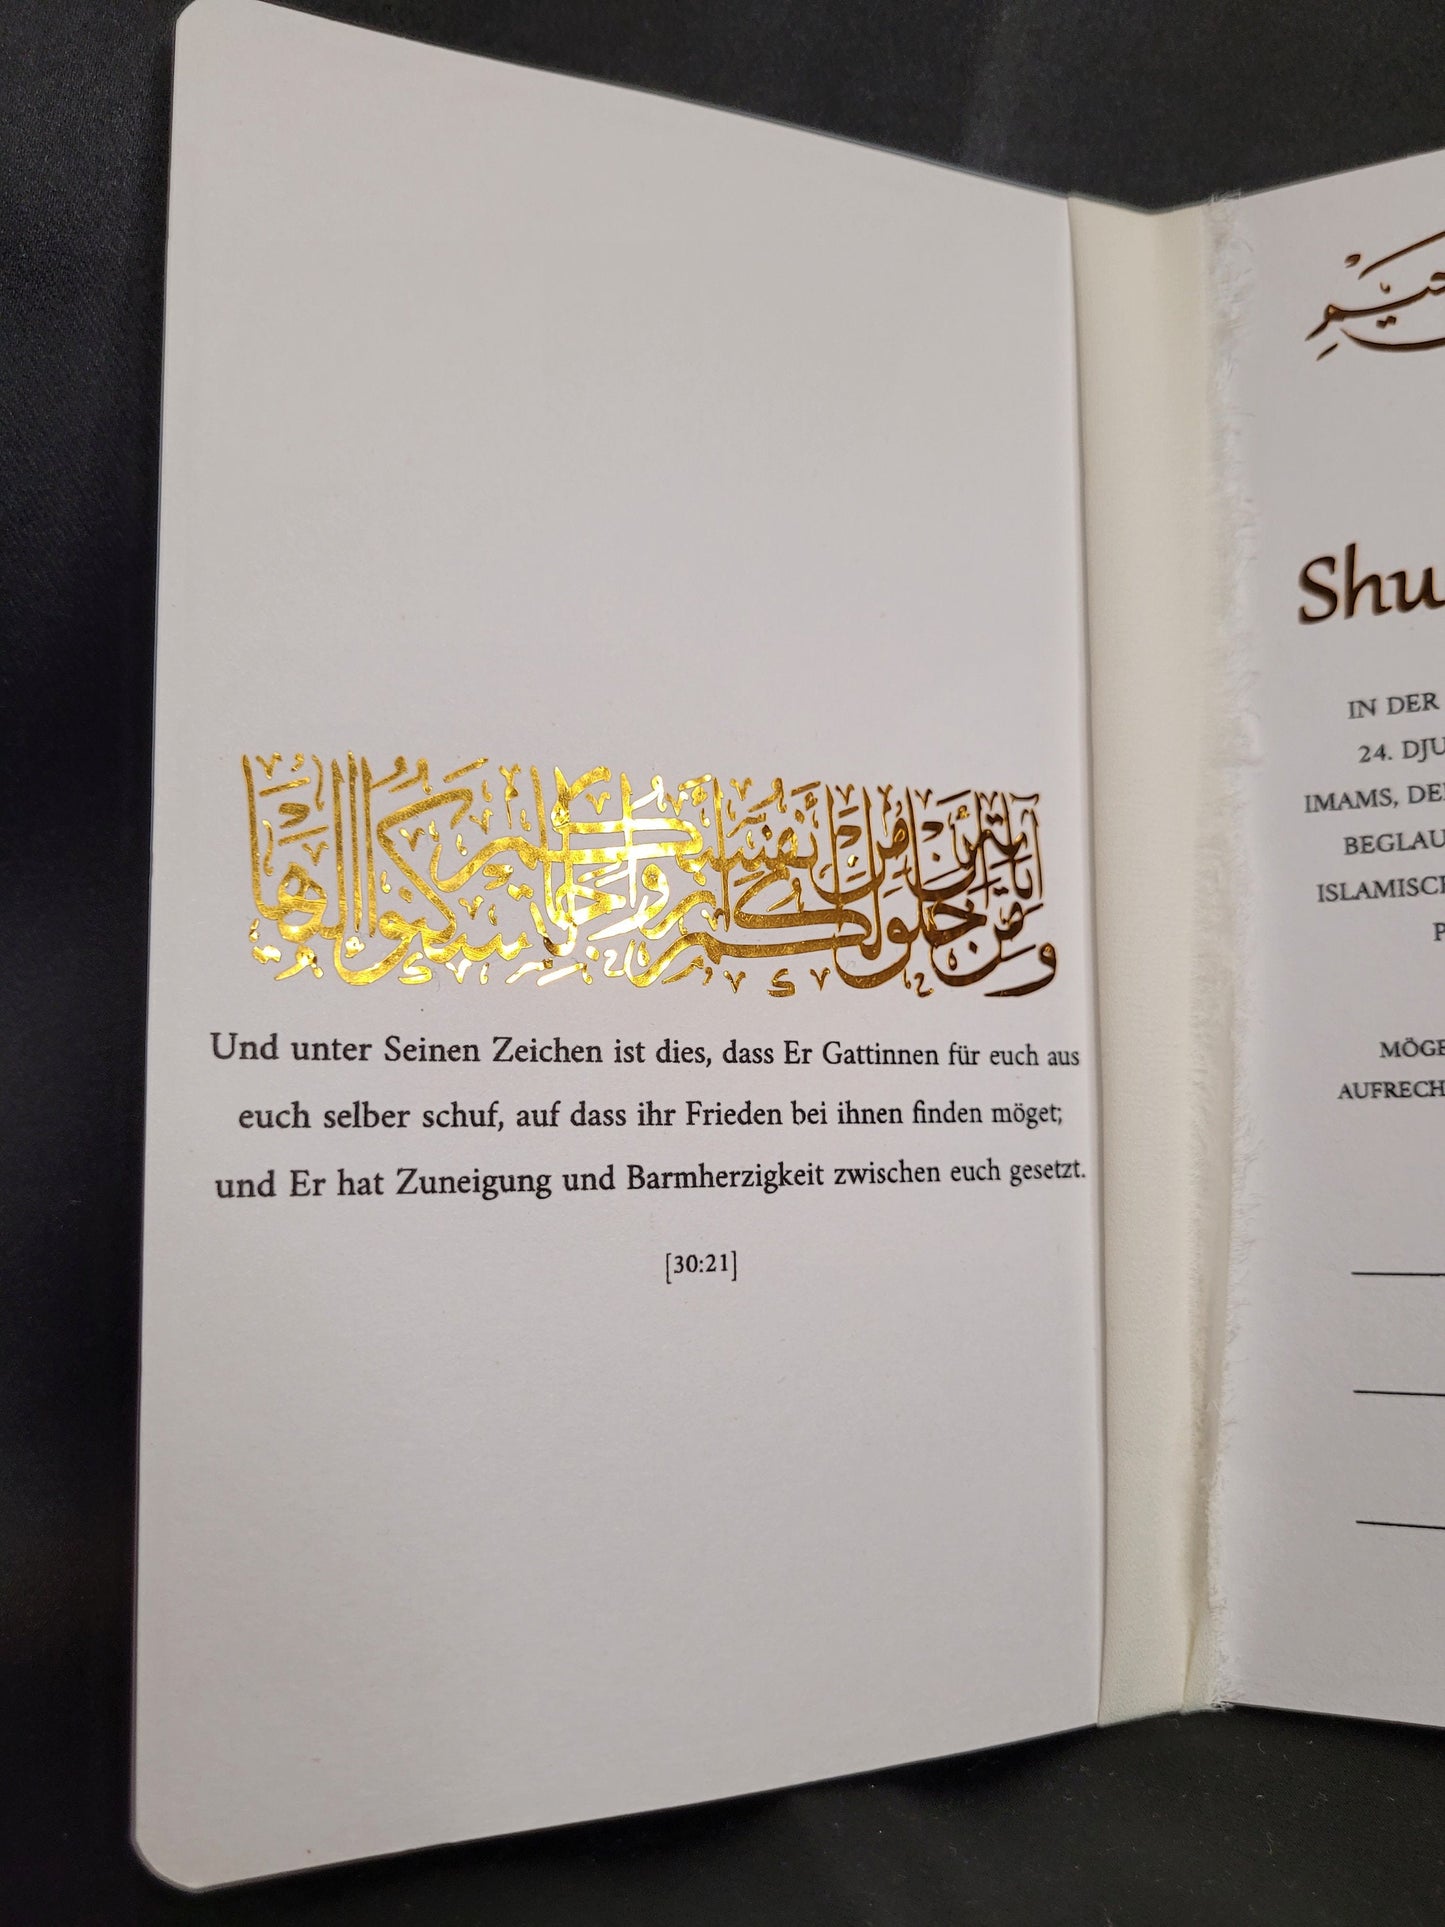 ومن آياته أن خلق لكم من أنفسكم أزواجا لتسكنوا إليها
Und unter Seinen Zeichen ist dies, dass Er Gattinnen für euch aus
euch selber schuf, auf dass ihr Frieden bei ihnen finden möget;
und Er hat Zuneigung und Barmherzigkeit zwischen euch gesetzt.
[30:21]
Shu
IN DER
24. DJU
IMAMS, DE
BEGLAU
ISLAMISC
P
MÖGE
AUFRECH